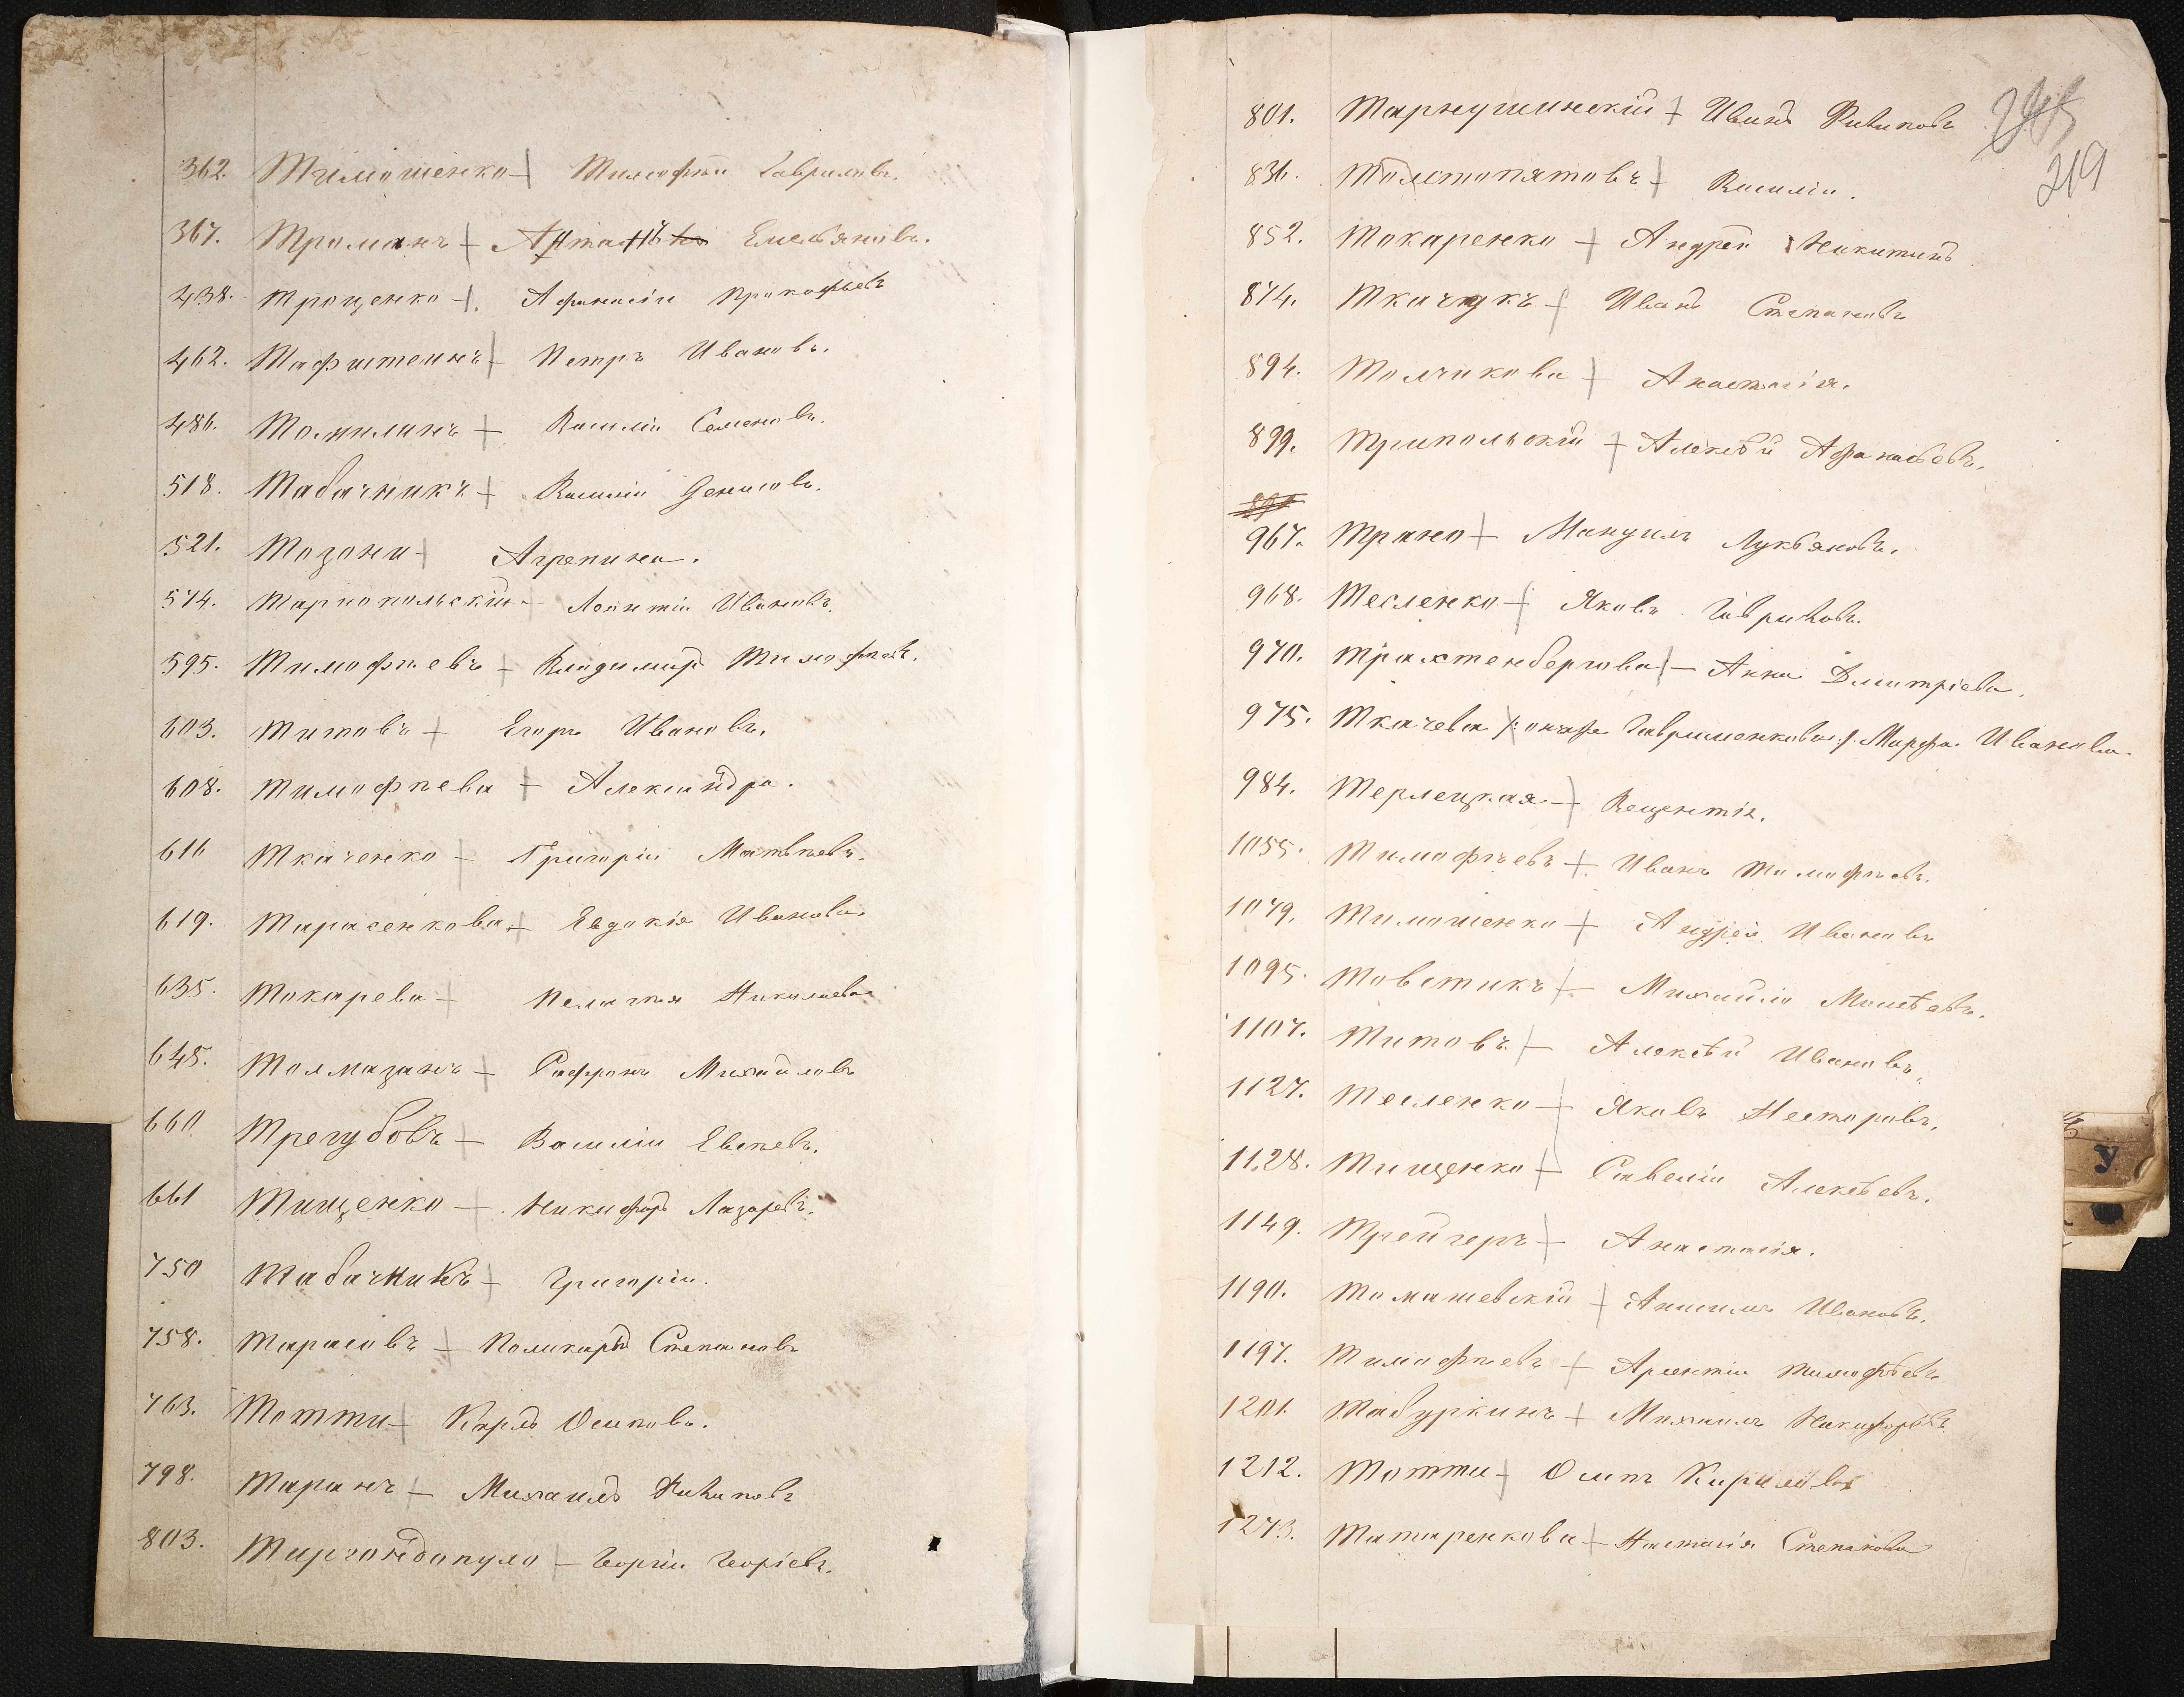 362. Тимошенко Тимофѣй Гавриловъ.
367. Троманъ Емельяновъ.
438. Троценко Афанасій Прокофьевъ
462. Тафитеинъ Петръ Ивановъ.
486. Томилинъ Василій Семеновъ.
518. Табачникъ Василій Денисовъ.
521. Тозони Агрепина.
574. Тарнопольскій Леонтій Ивановъ.
595. Тимофѣевъ Владимиръ Тимофѣевъ.
603. Титовъ Егоръ Ивановъ.
608. Тимофѣева Александра.
616 Ткаченко Григорій Матвѣевъ.
619. Тарасенкова Евдокія Иванова.
635. Токарева Пелагія Николаева
645. Толмазанъ Сафронъ Михайловъ
660. Трегубовъ Василій Евсѣевъ.
661 Тищенко Никифоръ Лазаревъ.
750 Табачникъ Григорій.
758. Тарасовъ Поликарпъ Степановъ
763. Тотти Карлъ Осиповъ.
798. Таранъ Михаилъ Филиповъ
803. Георгій Георгіевъ.
801. Иванъ Филиповъ
245
219
836. Толстопятовъ Василій.
852. Токаренко Андрей Никитинъ
874. Ткачукъ Иванъ Степановъ
894. Толчикова Анастасія.
899. Трипольскій Алексѣй Афанасьевъ.
967. Трано Мануилъ Лукьяновъ.
968. Тесленко Яковъ Гавриловъ.
970. Трахтенбергова Анна Дмитріева.
975. Ткачева /: онаже Гавришенкова :/ Марфа Иванова.
984. Терлецкая
1055. Тимофѣевъ Иванъ Тимофѣевъ.
1079. Тимошенко Андрей Ивановъ
1095. Товстикъ Михайло Моисѣевъ.
1107. Титовъ Алексѣй Ивановъ.
1127. Тесленко Яковъ Несторовъ.
1128. Тищенко Савелій Алексѣевъ.
1149. Трейгеръ Анастасія.
1190. Томашевскій Анисимъ Ивановъ.
1197. Тимофѣевъ Арсентій Тимофѣевъ
1201. Табуркинъ Михаилъ Никифоровъ
1212. Тотти Осипъ Кариловъ
1273. Татаренкова Настасія Степанова
У